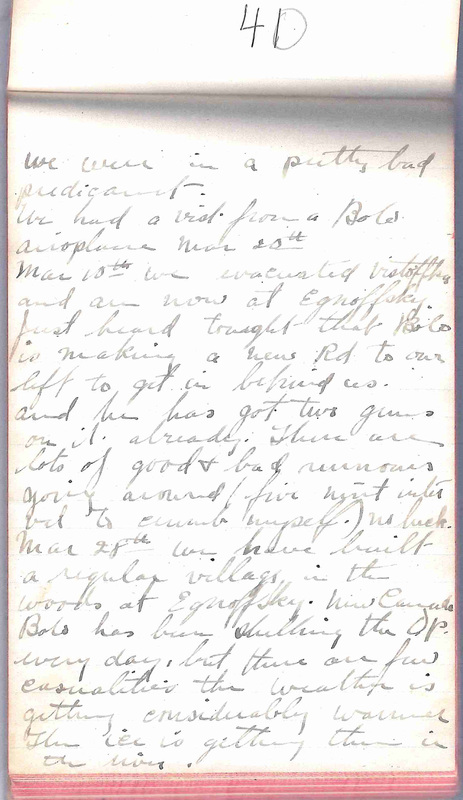 41
we were in a pretty bad
predicament.
We had a visit from a Bolo
airoplane Mar 20th
Mar 10th we evacuated
and are now at Egnoffsky.
Just heard tonight that Bolo
is making a new Rd to our
left to get in behind us.
and he has got two guns
on it already. There are
lots of good & bad rumours
going around (five mint inter
vel to cumb myself.) no luck.
Mar 28th we have built
a regular village in the
woods at Egnoffsky. New
Bolo has been shelling the O.P.
every day. but there are few
casualities the weather is
getting considerably warmer
The ice is getting thin in
the river.